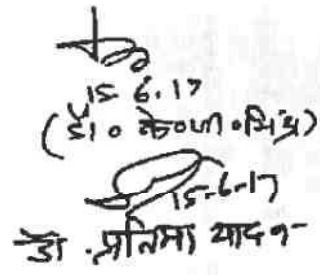 15.6.17
(डॉ० के०जी०मिश्र)
15-6-17
डा. प्रतिमा यादव